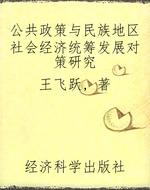 公共政策与民族地区
社会经济统筹发展对
策研究
王飞跃，著
经济科学出版社